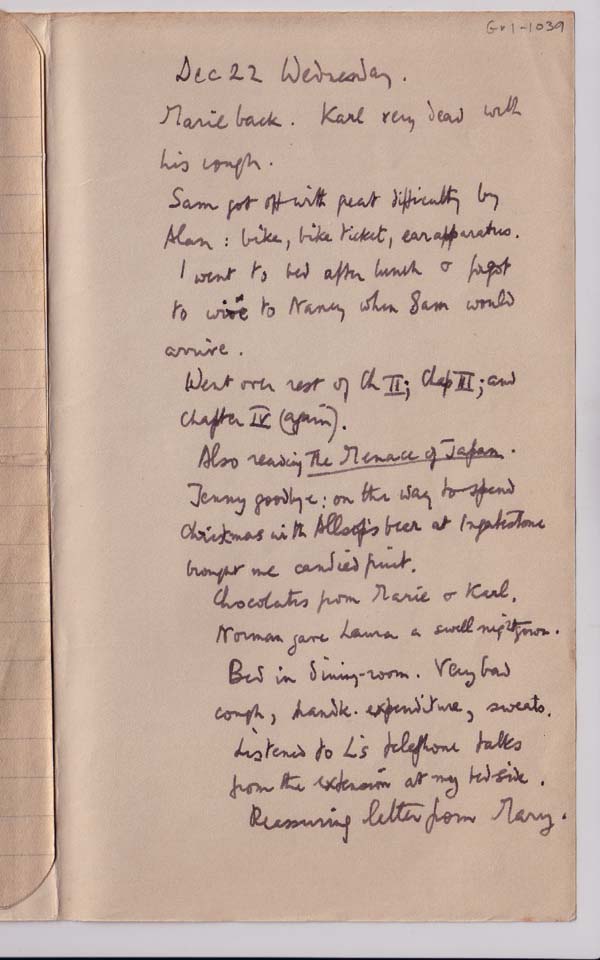 Gr1-1039
Dec 22 Wednesday.
Marie back. Karl very dead with
his cough.
Sam got off with great difficulty by
Alan: bike, bike ticket, ear apparatus.
I went to bed after lunch & forgot
to wire to Nancy when Sam would
arrive.
Went over rest of Ch II; Chap III; and
Chapter IV (again).
Also reading The Menace of Japan.
Jenny goodbye: on the way to spend
Christmas with Allsop's beer at Ingatestone
brought me candied fruit.
Chocolates from Marie & Karl.
Norman gave Laura a swell nightgown.
Bed in dining-room. Very bad
cough, handk. expenditure, sweats.
Listened to L's telephone talks
from the extension at my bedside.
Reassuring letter from Mary.